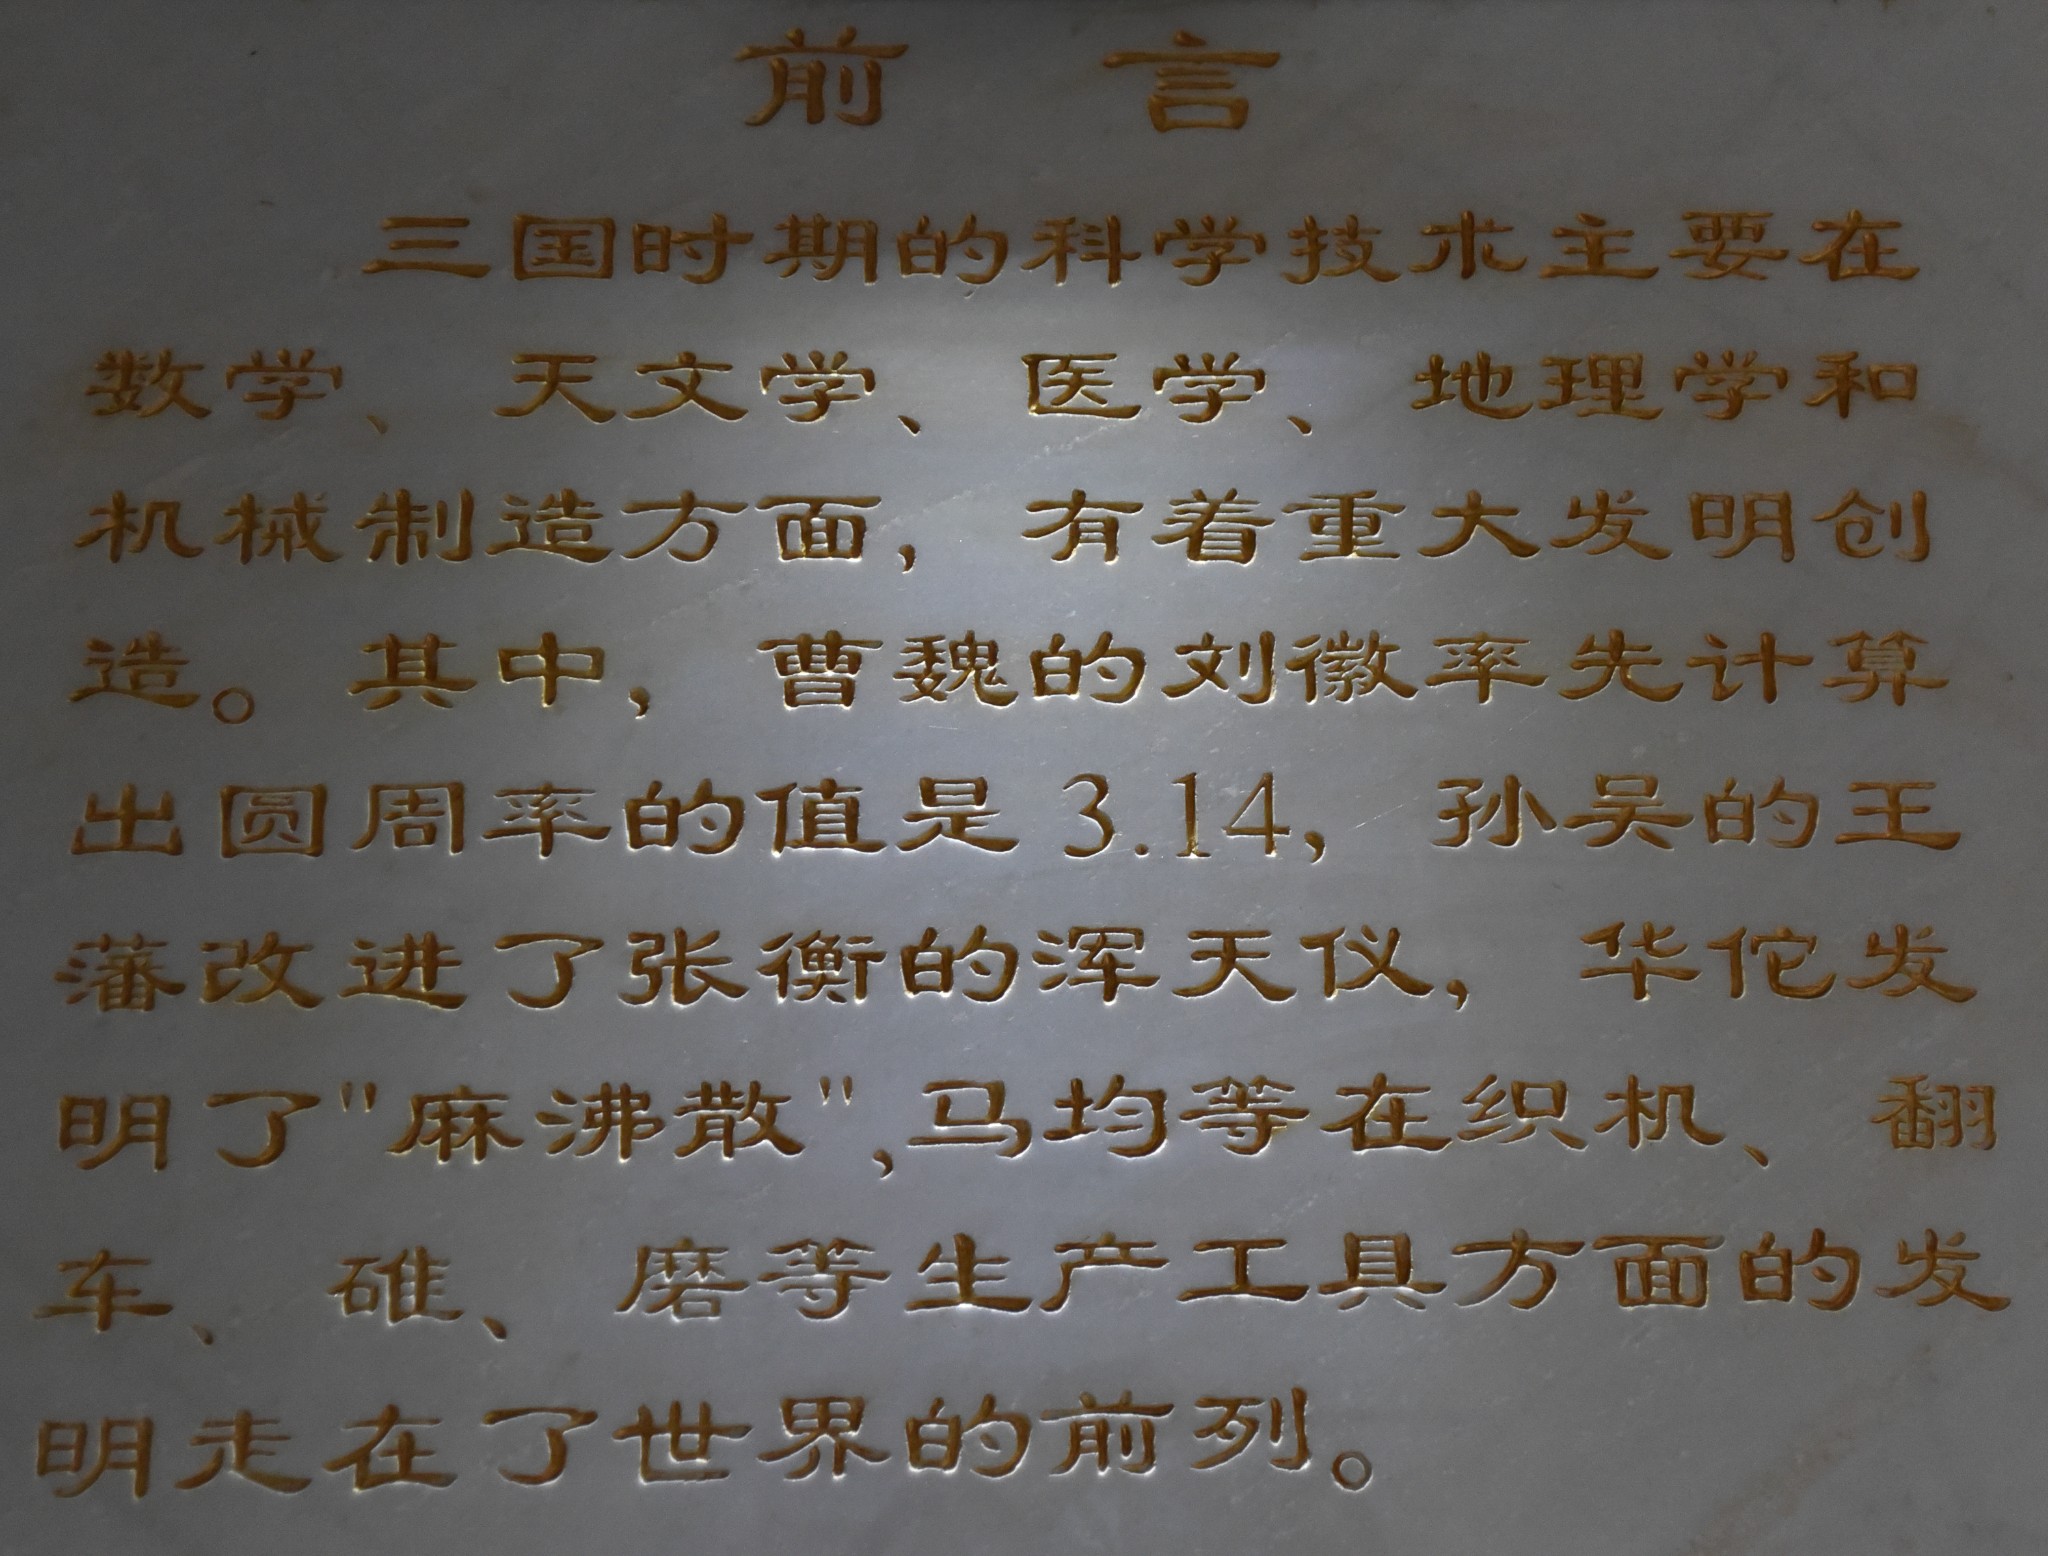 前言
三国时期的科学技术主要在
数学、天文学、医学、地理学和
机械制造方面，有着重大发明创
造。其中，曹魏的刘徽率先计算
出圆周率的值是3.14，孙吴的王
藩改进了张衡的浑天仪，华佗发
明了"麻沸散",马均等在织机、翻
车、碓、磨等生产工具方面的发
明走在了世界的前列。